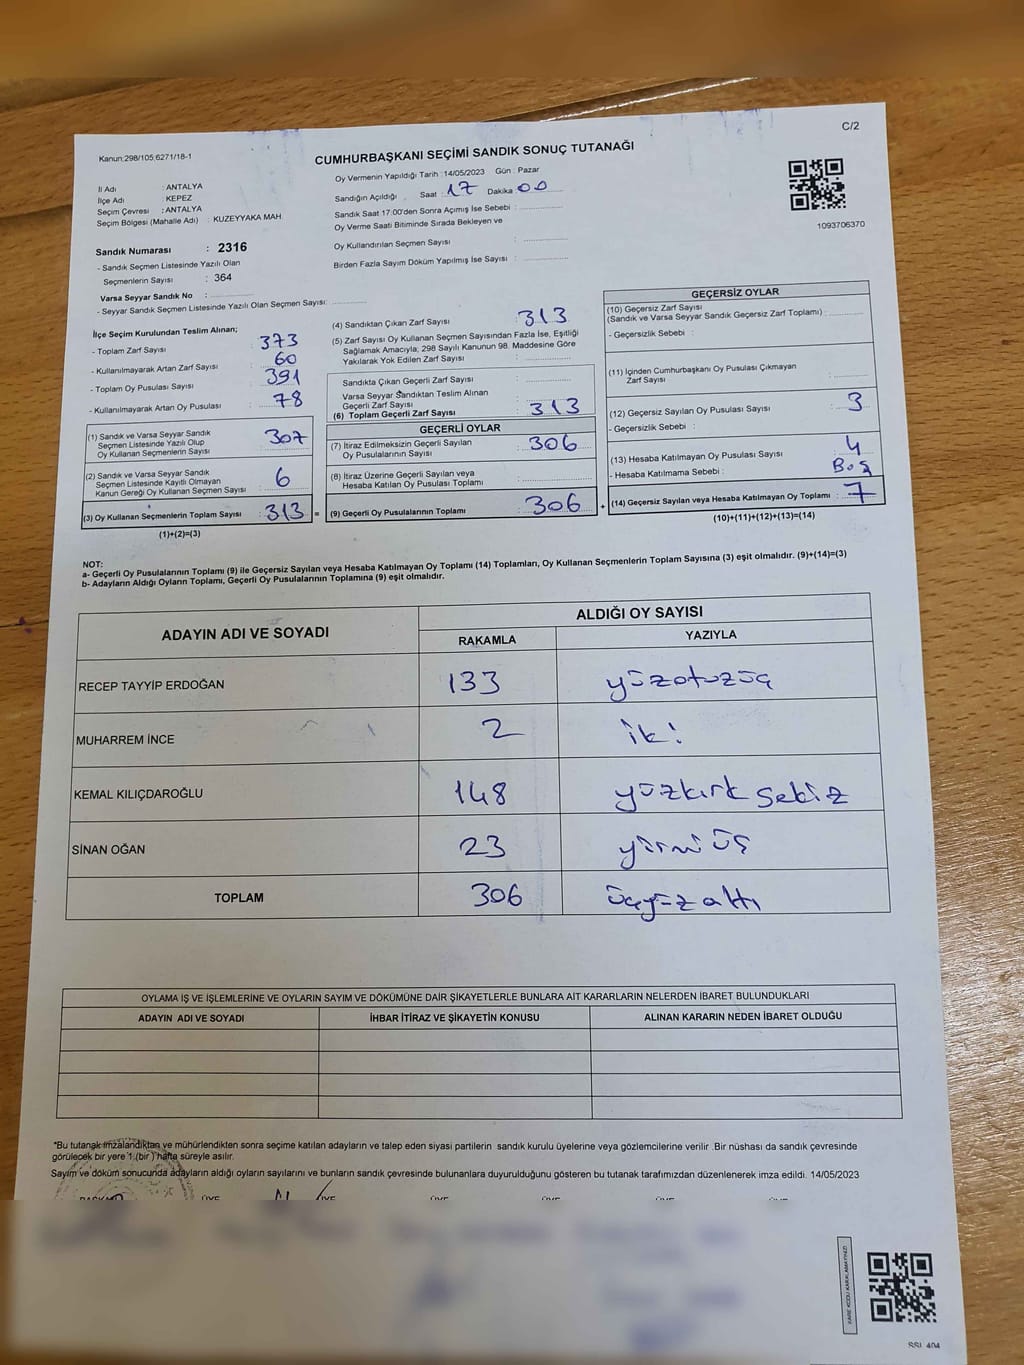 C/2
Kanun:298/105;6271/18-1
CUMHURBAŞKANI SEÇİMİ SANDIK SONUÇ TUTANAĞI
Oy Vermenin Yapıldığı Tarih : 14/05/2023 Gün : Pazar
İl Adı : ANTALYA
İlçe Adı : KEPEZ
Seçim Çevresi : ANTALYA
Seçim Bölgesi (Mahalle Adı) : KUZEYYAKA MAH
Sandık Numarası : 2316
- Sandık Seçmen Listesinde Yazılı Olan
Seçmenlerin Sayısı : 364
Varsa Seyyar Sandık No :
- Seyyar Sandık Seçmen Listesinde Yazılı Olan Seçmen Sayısı:
Sandığın Açıldığı Saat : 17 Dakika : 00
Sandık Saat 17:00'den Sonra Açımış İse Sebebi :
Oy Verme Saati Bitiminde Sırada Bekleyen ve
Oy Kullandırılan Seçmen Sayısı :
Birden Fazla Sayım Döküm Yapılmış İse Sayısı :
1093706370
İlçe Seçim Kurulundan Teslim Alınan;
- Toplam Zarf Sayısı : 373
- Kullanılmayarak Artan Zarf Sayısı : 60
- Toplam Oy Pusulası Sayısı : 391
- Kullanılmayarak Artan Oy Pusulası : 78
(1) Sandık ve Varsa Seyyar Sandık
Seçmen Listesinde Yazılı Olup
Oy Kullanan Seçmenlerin Sayısı : 307
(2) Sandık ve Varsa Seyyar Sandık
Seçmen Listesinde Kayıtlı Olmayan
Kanun Gereği Oy Kullanan Seçmen Sayısı : 6
(3) Oy Kullanan Seçmenlerin Toplam Sayısı : 313 =
(1)+(2)=(3)
(4) Sandıktan Çıkan Zarf Sayısı : 313
(5) Zarf Sayısı Oy Kullanan Seçmen Sayısından Fazla İse, Eşitliği
Sağlamak Amacıyla; 298 Sayılı Kanunun 98. Maddesine Göre
Yakılarak Yok Edilen Zarf Sayısı :
Sandıkta Çıkan Geçerli Zarf Sayısı :
Varsa Seyyar Sandıktan Teslim Alınan
Geçerli Zarf Sayısı :
(6) Toplam Geçerli Zarf Sayısı : 313
GEÇERLİ OYLAR
(7) İtiraz Edilmeksizin Geçerli Sayılan
Oy Pusulalarının Sayısı : 306
(8) İtiraz Üzerine Geçerli Sayılan veya
Hesaba Katılan Oy Pusulası Toplamı :
(9) Geçerli Oy Pusulalarının Toplamı : 306 +
GEÇERSİZ OYLAR
(10) Geçersiz Zarf Sayısı
(Sandık ve Varsa Seyyar Sandık Geçersiz Zarf Toplamı) :
- Geçersizlik Sebebi :
(11) İçinden Cumhurbaşkanı Oy Pusulası Çıkmayan
Zarf Sayısı :
(12) Geçersiz Sayılan Oy Pusulası Sayısı : 3
- Geçersizlik Sebebi :
(13) Hesaba Katılmayan Oy Pusulası Sayısı : 4
- Hesaba Katılmama Sebebi : Boş
(14) Geçersiz Sayılan veya Hesaba Katılmayan Oy Toplamı : 7
(10)+(11)+(12)+(13)=(14)
NOT:
a- Geçerli Oy Pusulalarının Toplamı (9) ile Geçersiz Sayılan veya Hesaba Katılmayan Oy Toplamı (14) Toplamları, Oy Kullanan Seçmenlerin Toplam Sayısına (3) eşit olmalıdır. (9)+(14)=(3)
b- Adayların Aldığı Oyların Toplamı, Geçerli Oy Pusulalarının Toplamına (9) eşit olmalıdır.
ADAYIN ADI VE SOYADI
ALDIĞI OY SAYISI
RAKAMLA YAZIYLA
RECEP TAYYİP ERDOĞAN 133 yüzotuzüç
MUHARREM İNCE 2 iki
KEMAL KILIÇDAROĞLU 148 yüzkırk sekiz
SİNAN OĞAN 23 yirmi üç
TOPLAM 306 üçyüz altı
OYLAMA İŞ VE İŞLEMLERİNE VE OYLARIN SAYIM VE DÖKÜMÜNE DAİR ŞİKAYETLERLE BUNLARA AİT KARARLARIN NELERDEN İBARET BULUNDUKLARI
ADAYIN ADI VE SOYADI İHBAR İTİRAZ VE ŞİKAYETİN KONUSU ALINAN KARARIN NEDEN İBARET OLDUĞU
*Bu tutanak imzalandıktan ve mühürlendikten sonra seçime katılan adayların ve talep eden siyasi partilerin sandık kurulu üyelerine veya gözlemcilerine verilir .Bir nüshası da sandık çevresinde
görülecek bir yere 1 (bir ) hafta süreyle asılır.
Sayım ve döküm sonucunda adayların aldığı oyların sayılarını ve bunların sandık çevresinde bulunanlara duyurulduğunu gösteren bu tutanak tarafımızdan düzenlenerek imza edildi. 14/05/2023
BAŞKAN ÜYE ÜYE ÜYE ÜYE ÜYE ÜYE
KARE KODU KARALAMAYINIZ!